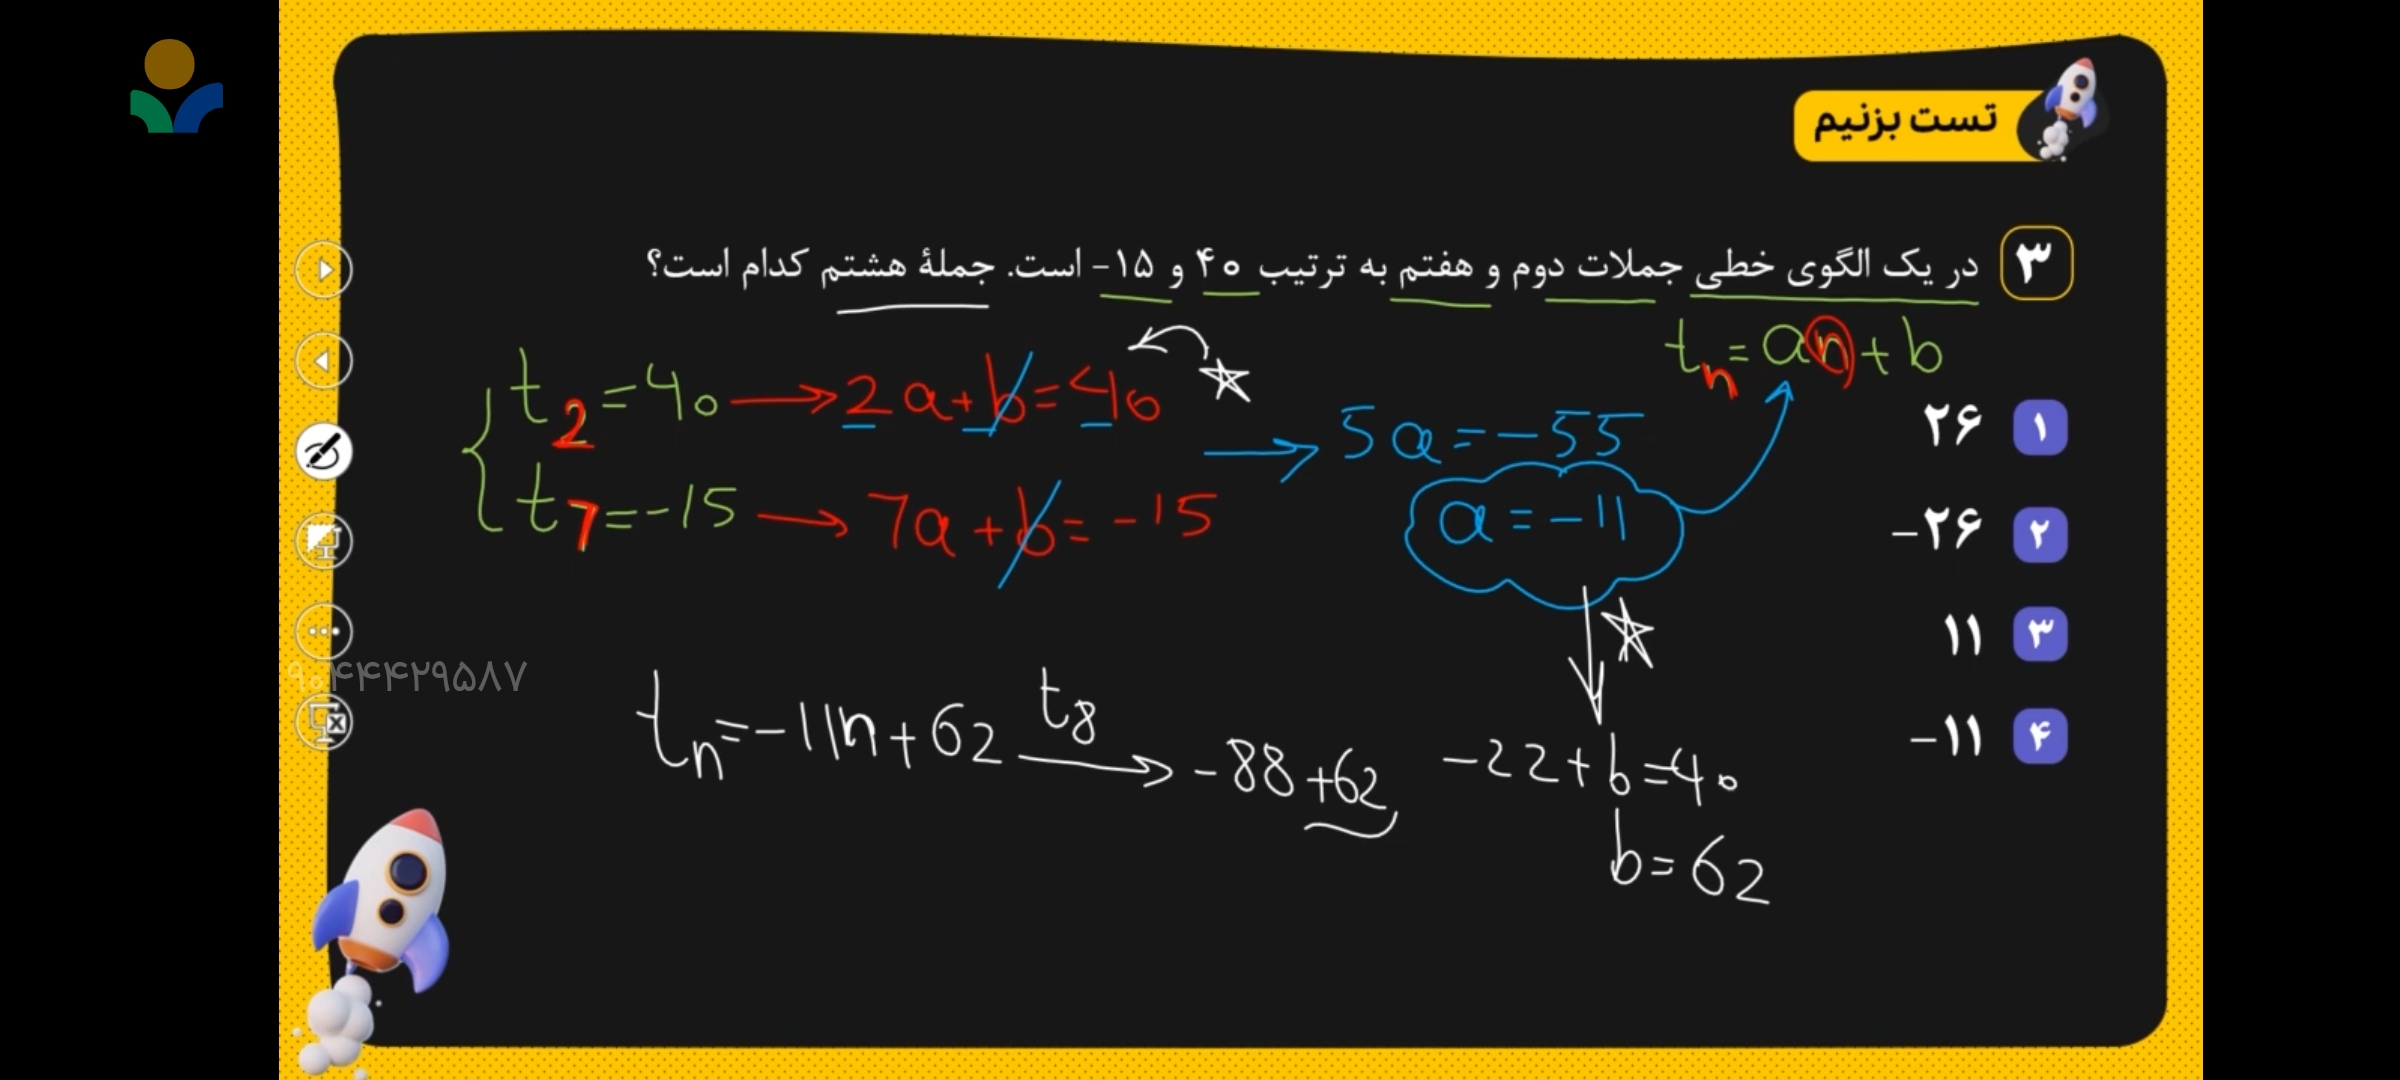 تست بزنیم
۳ در یک الگوی خطی جملات دوم و هفتم به ترتیب ۴۰ و ۱۵- است. جملهٔ هشتم کدام است؟
tn = an + b
t2 = 40 → 2a + b = 40
t7 = -15 → 7a + b = -15
→ 5a = -55
a = -11
۱ ۲۶
۲ -۲۶
۳ ۱۱
۴ -۱۱
-22 + b = 40
b = 62
tn = -11n + 62 t8 → -88 + 62
۹۰۴۴۴۲۹۵۸۷